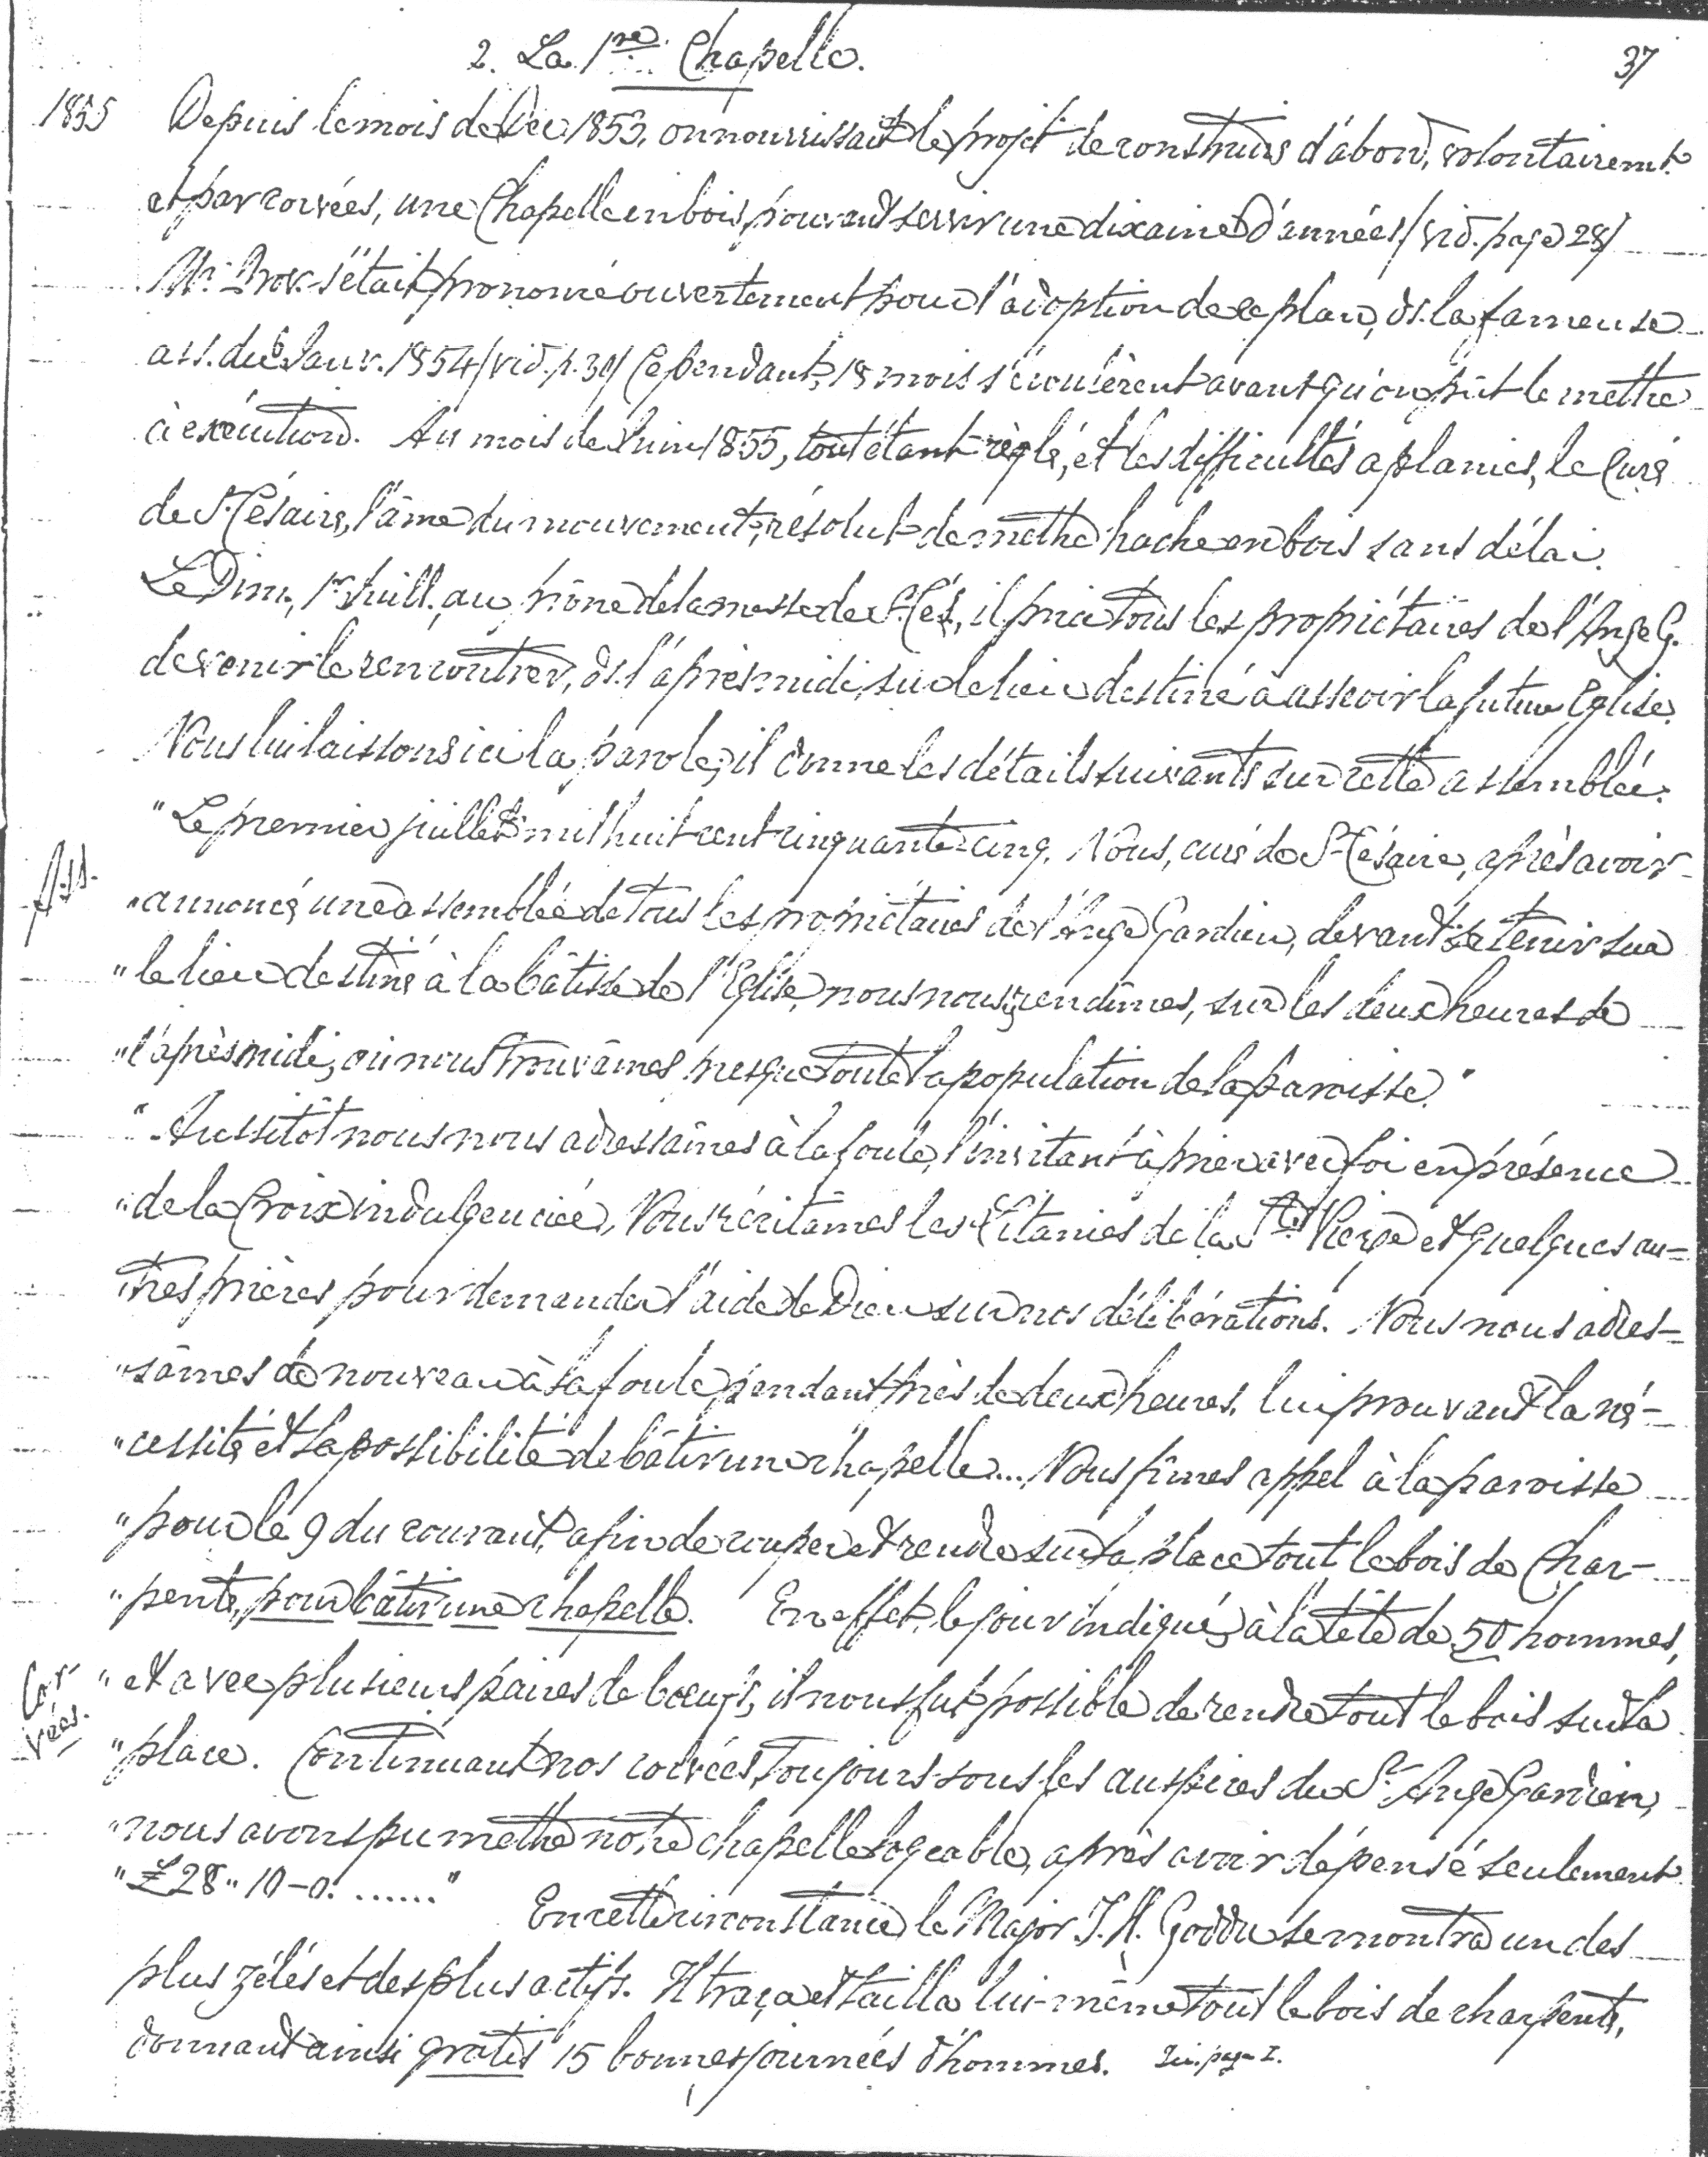 2. La 1re Chapelle.
37
1855
Depuis le mois de Déc 1853, on nourrissait le projet de construire d'abord, volontairemt
et par corvées, une Chapelle en bois, pouvant servir une dixaine d'années /vid. page 28/
Mr. Prov. s'était prononcé ouvertement pour l'adoption de ce plan, ds. la fameuse
ass. du Janv. 1854 /vid. p. 30/ Cependant, 18 mois s'écoulèrent avant qu'on pût le mettre
à exécution. Au mois de Juin 1855, tout étant règlé, et les difficultés aplanies, le Curé
de St Césaire, l'âme du mouvement, résolut de mettre hache en bois sans délai.
Le Dim. 1er Juill. au prône de la messe de St Cés, il pria tous les propriétaires de l'Ange G.
de venir le rencontrer, ds. l'après midi, sur le lieu destiné à asseoir la future Eglise.
Nous lui laissons ici la parole; il donne les détails suivants sur cette assemblée.
"Le premier juillet mil huit cent cinquante-cinq. Nous, curé de St Césaire, après avoir
Ass.
"annoncé une assemblée de tous les propriétaires de l'Ange Gardien, devant se tenir sur
"le lieu destiné à la bâtisse de l'Eglise, nous nous y rendîmes, sur les deux heures de
"l'après midi, où nous trouvâmes presque toute la population de la paroisse."
"Aussitôt nous nous adressâmes à la foule, l'invitant à prier avec foi en présence
"de la Croix indulgenciée, Nous récitâmes les Litanies de la Ste Vierge et quelques au=
tres prières pour demander l'aide de Dieu sur nos délibérations. Nous nous adres=
"sâmes de nouveau à la foule, pendant près de deux heures, lui prouvant la né-
"cessité et la possibilité de bâtir une chapelle... Nous fîmes appel à la paroisse
"pour le 9 du courant, afin de couper et rendre sur la place tout le bois de Char-
"pente, pour bâtir une chapelle. En effet, le jour indiqué, à la tête de 50 hommes,
Cor-
vées.
"et avec plusieurs paires de boeufs, il nous fut possible de rendre tout le bois sur la
"place. Continuant nos corvées, toujours sous les auspices du St. Ange Gardien,
"nous avons pu mettre notre chapelle logeable, après avoir dépensé seulement
"£28" 10-0. ......" En cette circonstance, le Major J. H. Goddu se montra un des
plus zélés et des plus actifs. Il traça et tailla lui-même tout le bois de charpente,
donnant ainsi gratis 15 bonnes journées d'hommes.